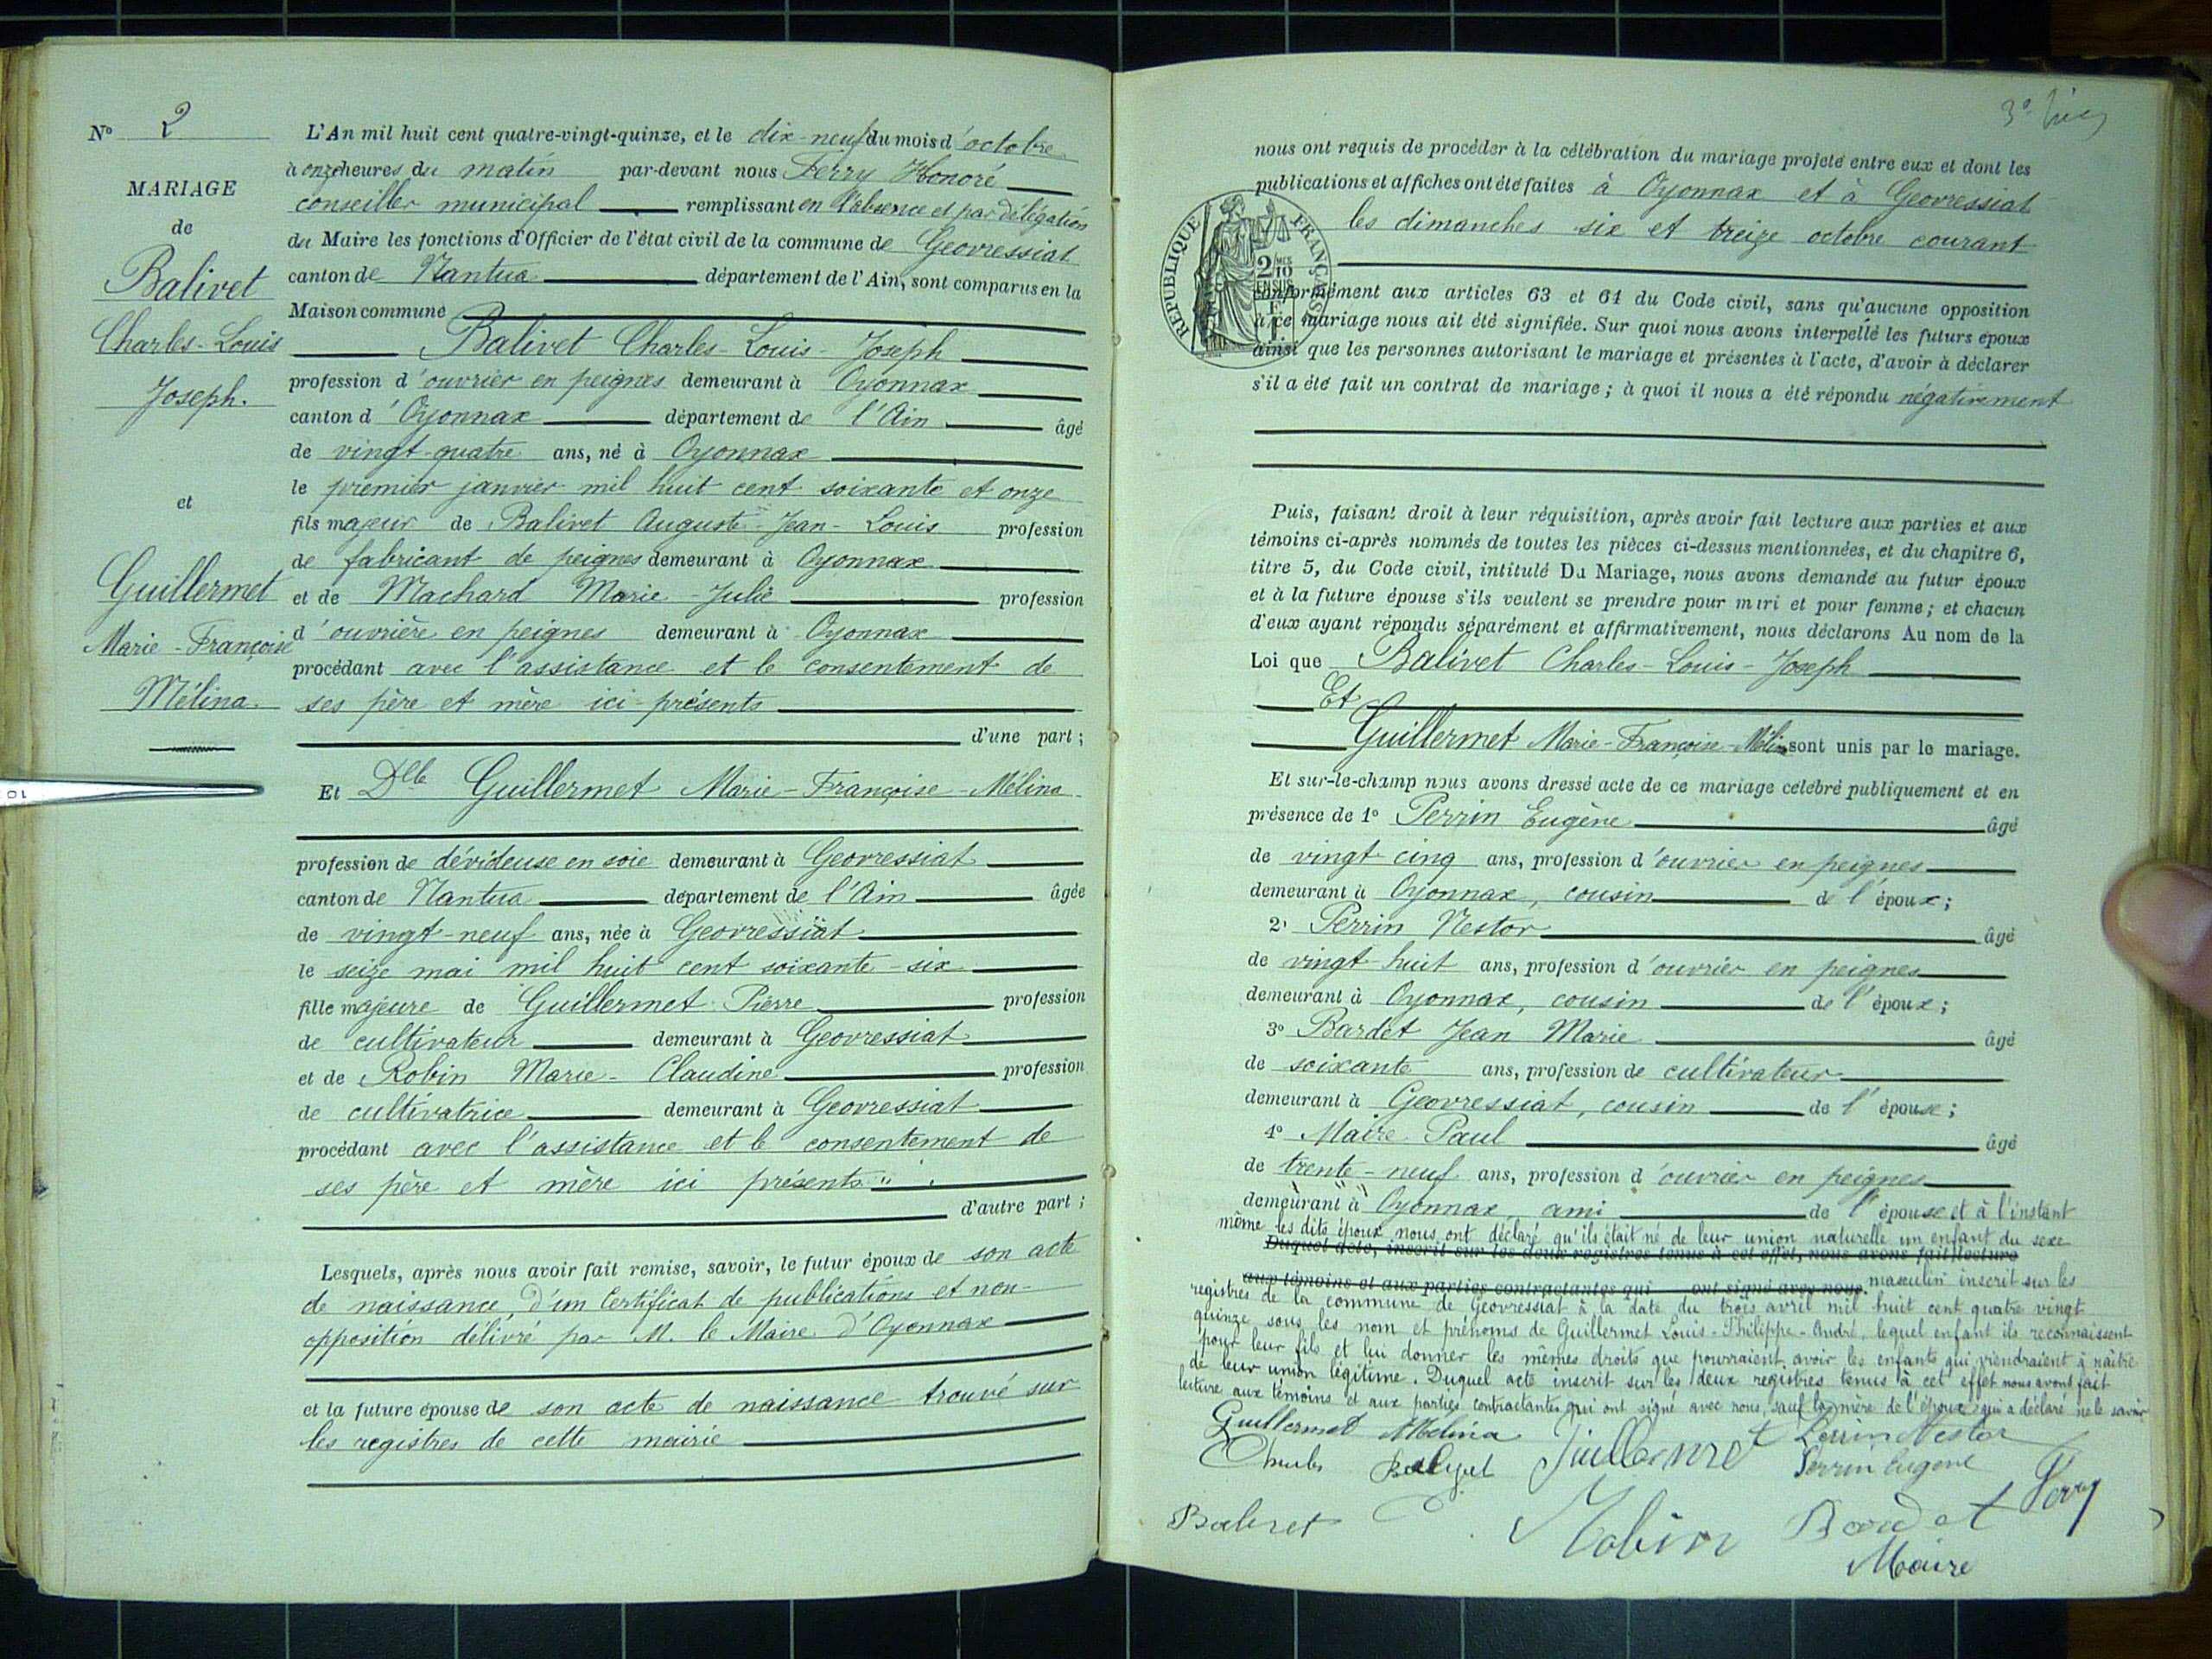 N° 2
MARIAGE
de
Balivet
Charles-Louis
Joseph.
et
Guillermet
Marie-Françoise
Mélina.
L'An mil huit cent quatre-vingt-quinze, et le dix-neuf du mois d'octobre
à onze heures du matin par-devant nous Ferry Honoré
conseiller municipal remplissant en l'absence et par délégation
du Maire les fonctions d'Officier de l'état civil de la commune de Geovressiat
canton de Nantua département de l'Ain, sont comparus en la
Maison commune
Balivet Charles-Louis-Joseph
profession d'ouvrier en peignes demeurant à Oyonnax
canton d'Oyonnax département de l'Ain âgé
de vingt-quatre ans, né à Oyonnax
le premier janvier mil huit cent soixante et onze
fils majeur de Balivet Auguste-Jean-Louis profession
de fabricant de peignes demeurant à Oyonnax
et de Machard Marie-Julie profession
d'ouvrière en peignes demeurant à Oyonnax
procédant avec l'assistance et le consentement de
ses père et mère ici présents
d'une part ;
Et Dlle Guillermet Marie-Françoise-Mélina
profession de dévideuse en soie demeurant à Geovressiat
canton de Nantua département de l'Ain âgée
de vingt-neuf ans, née à Geovressiat
le seize mai mil huit cent soixante-six
fille majeure de Guillermet Pierre profession
de cultivateur demeurant à Geovressiat
et de Robin Marie-Claudine profession
de cultivatrice demeurant à Geovressiat
procédant avec l'assistance et le consentement de
ses père et mère ici présents
d'autre part ;
Lesquels, après nous avoir fait remise, savoir, le futur époux de son acte
de naissance, d'un Certificat de publications et non-
opposition délivré par M. le Maire d'Oyonnax
et la future épouse de son acte de naissance trouvé sur
les registres de cette mairie
nous ont requis de procéder à la célébration du mariage projeté entre eux et dont les
publications et affiches ont été faites à Oyonnax et à Geovressiat
les dimanches six et treize octobre courant
REPUBLIQUE FRANÇAISE
2/10
EN SUS
conformément aux articles 63 et 64 du Code civil, sans qu'aucune opposition
à ce mariage nous ait été signifiée. Sur quoi nous avons interpellé les futurs époux
ainsi que les personnes autorisant le mariage et présentes à l'acte, d'avoir à déclarer
s'il a été fait un contrat de mariage ; à quoi il nous a été répondu négativement
Puis, faisant droit à leur réquisition, après avoir fait lecture aux parties et aux
témoins ci-après nommés de toutes les pièces ci-dessus mentionnées, et du chapitre 6,
titre 5, du Code civil, intitulé Du Mariage, nous avons demandé au futur époux
et à la future épouse s'ils veulent se prendre pour mari et pour femme ; et chacun
d'eux ayant répondu séparément et affirmativement, nous déclarons Au nom de la
Loi que Balivet Charles-Louis-Joseph
Et
Guillermet Marie-Françoise-Mélina sont unis par le mariage.
Et sur-le-champ nous avons dressé acte de ce mariage célébré publiquement et en
présence de 1° Perrin Eugène âgé
de vingt cinq ans, profession d'ouvrier en peignes
demeurant à Oyonnax, cousin de l'époux ;
2° Perrin Nestor âgé
de vingt-huit ans, profession d'ouvrier en peignes
demeurant à Oyonnax, cousin de l'époux ;
3° Bardet Jean Marie âgé
de soixante ans, profession de cultivateur
demeurant à Geovressiat, cousin de l'épouse ;
4° Maire Paul âgé
de trente-neuf ans, profession d'ouvrier en peignes
demeurant à Oyonnax, ami de l'épouse et à l'instant
même les dits époux nous ont déclaré qu'ils était né de leur union naturelle un enfant du sexe
Duquel acte, inscrit sur les deux registres tenus à cet effet, nous avons fait lecture
aux témoins et aux parties contractantes qui ont signé avec nous. masculin inscrit sur les
registres de la commune de Geovressiat à la date du trois avril mil huit cent quatre vingt
quinze sous les nom et prénoms de Guillermet Louis-Philippe-André, lequel enfant ils reconnaissent
pour leur fils et lui donner les mêmes droits que pourraient avoir les enfants qui viendraient à naître
de leur union légitime. Duquel acte inscrit sur les deux registres tenus à cet effet nous avons fait
lecture aux témoins et aux parties contractantes qui ont signé avec nous, sauf la mère de l'époux qui a déclaré ne le savoir
Guillermet Mélina Guillermet Perrin Nestor
Charles Balivet Perrin Eugène
Ferry
Balivet Robin Bardet
Maire